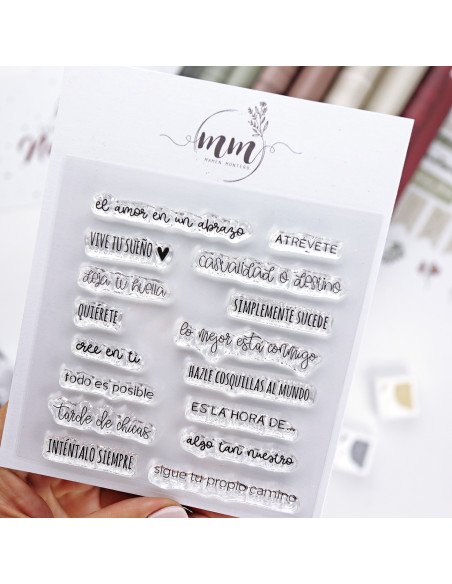 mm
MAMEN MONTERO
el amor en un abrazo
VIVE TU SUEÑO
deja tu huella
QUIÉRETE
cree en ti
todo es posible
tarde de chicas
INTÉNTALO SIEMPRE
ATRÉVETE
casualidad o destino
SIMPLEMENTE SUCEDE
lo mejor está conmigo
HAZLE COSQUILLAS AL MUNDO
ES LA HORA DE...
algo tan nuestro
sigue tu propio camino